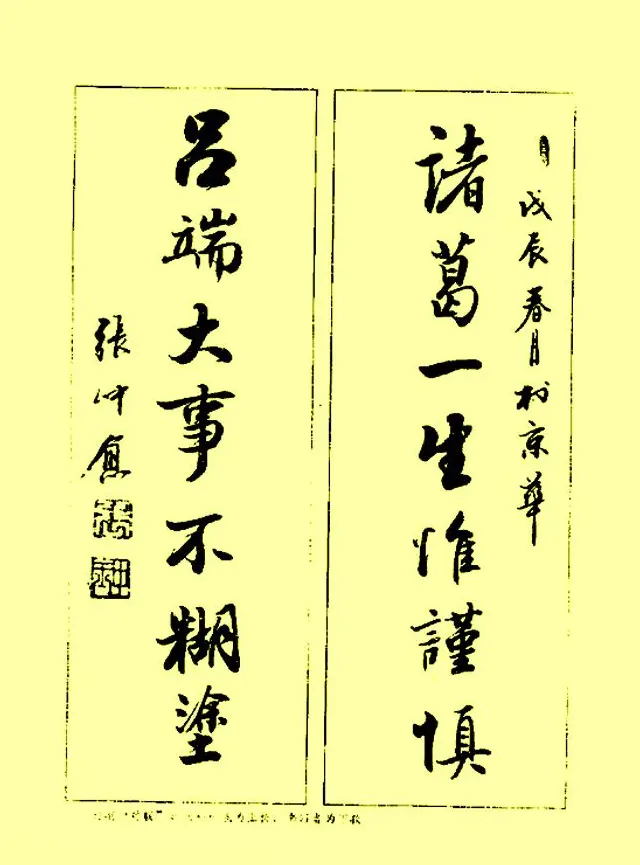 戊辰春月於京華
諸葛一生惟謹慎
呂端大事不糊塗
張仲愈